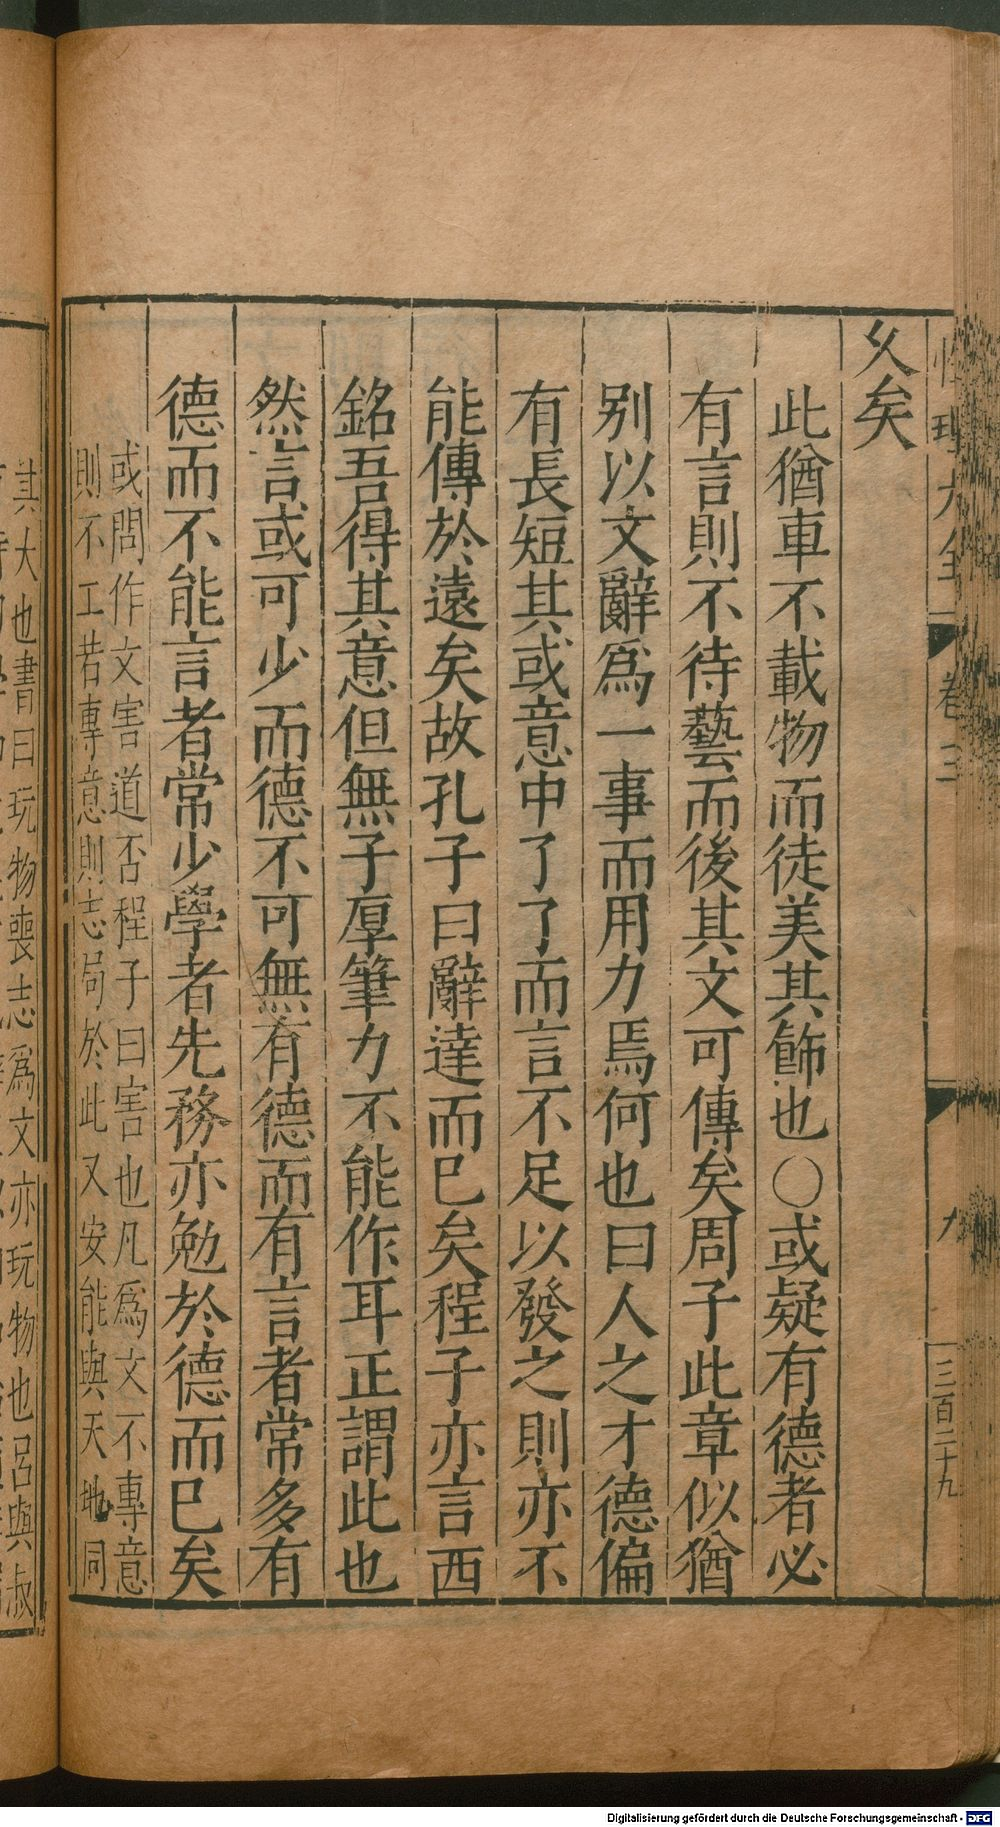 性理大全 卷三 九 三百二十九
乆矣
此猶車不載物而徒美其飾也○或疑有德者必
有言則不待藝而後其文可傳矣周子此章似猶
别以文辭爲一事而用力焉何也曰人之才德偏
有長短其或意中了了而言不足以發之則亦不
能傳於遠矣故孔子曰辭達而已矣程子亦言西
銘吾得其意但無子厚筆力不能作耳正謂此也
然言或可少而德不可無有德而有言者常多有
德而不能言者常少學者先務亦勉於德而已矣
或問作文害道否程子曰害也凡爲文不專意
則不工若專意則志局於此又安能與天地同
其大也書曰玩物喪志爲文亦玩物也呂與叔
Digitalisierung gefördert durch die Deutsche Forschungsgemeinschaft - DFG